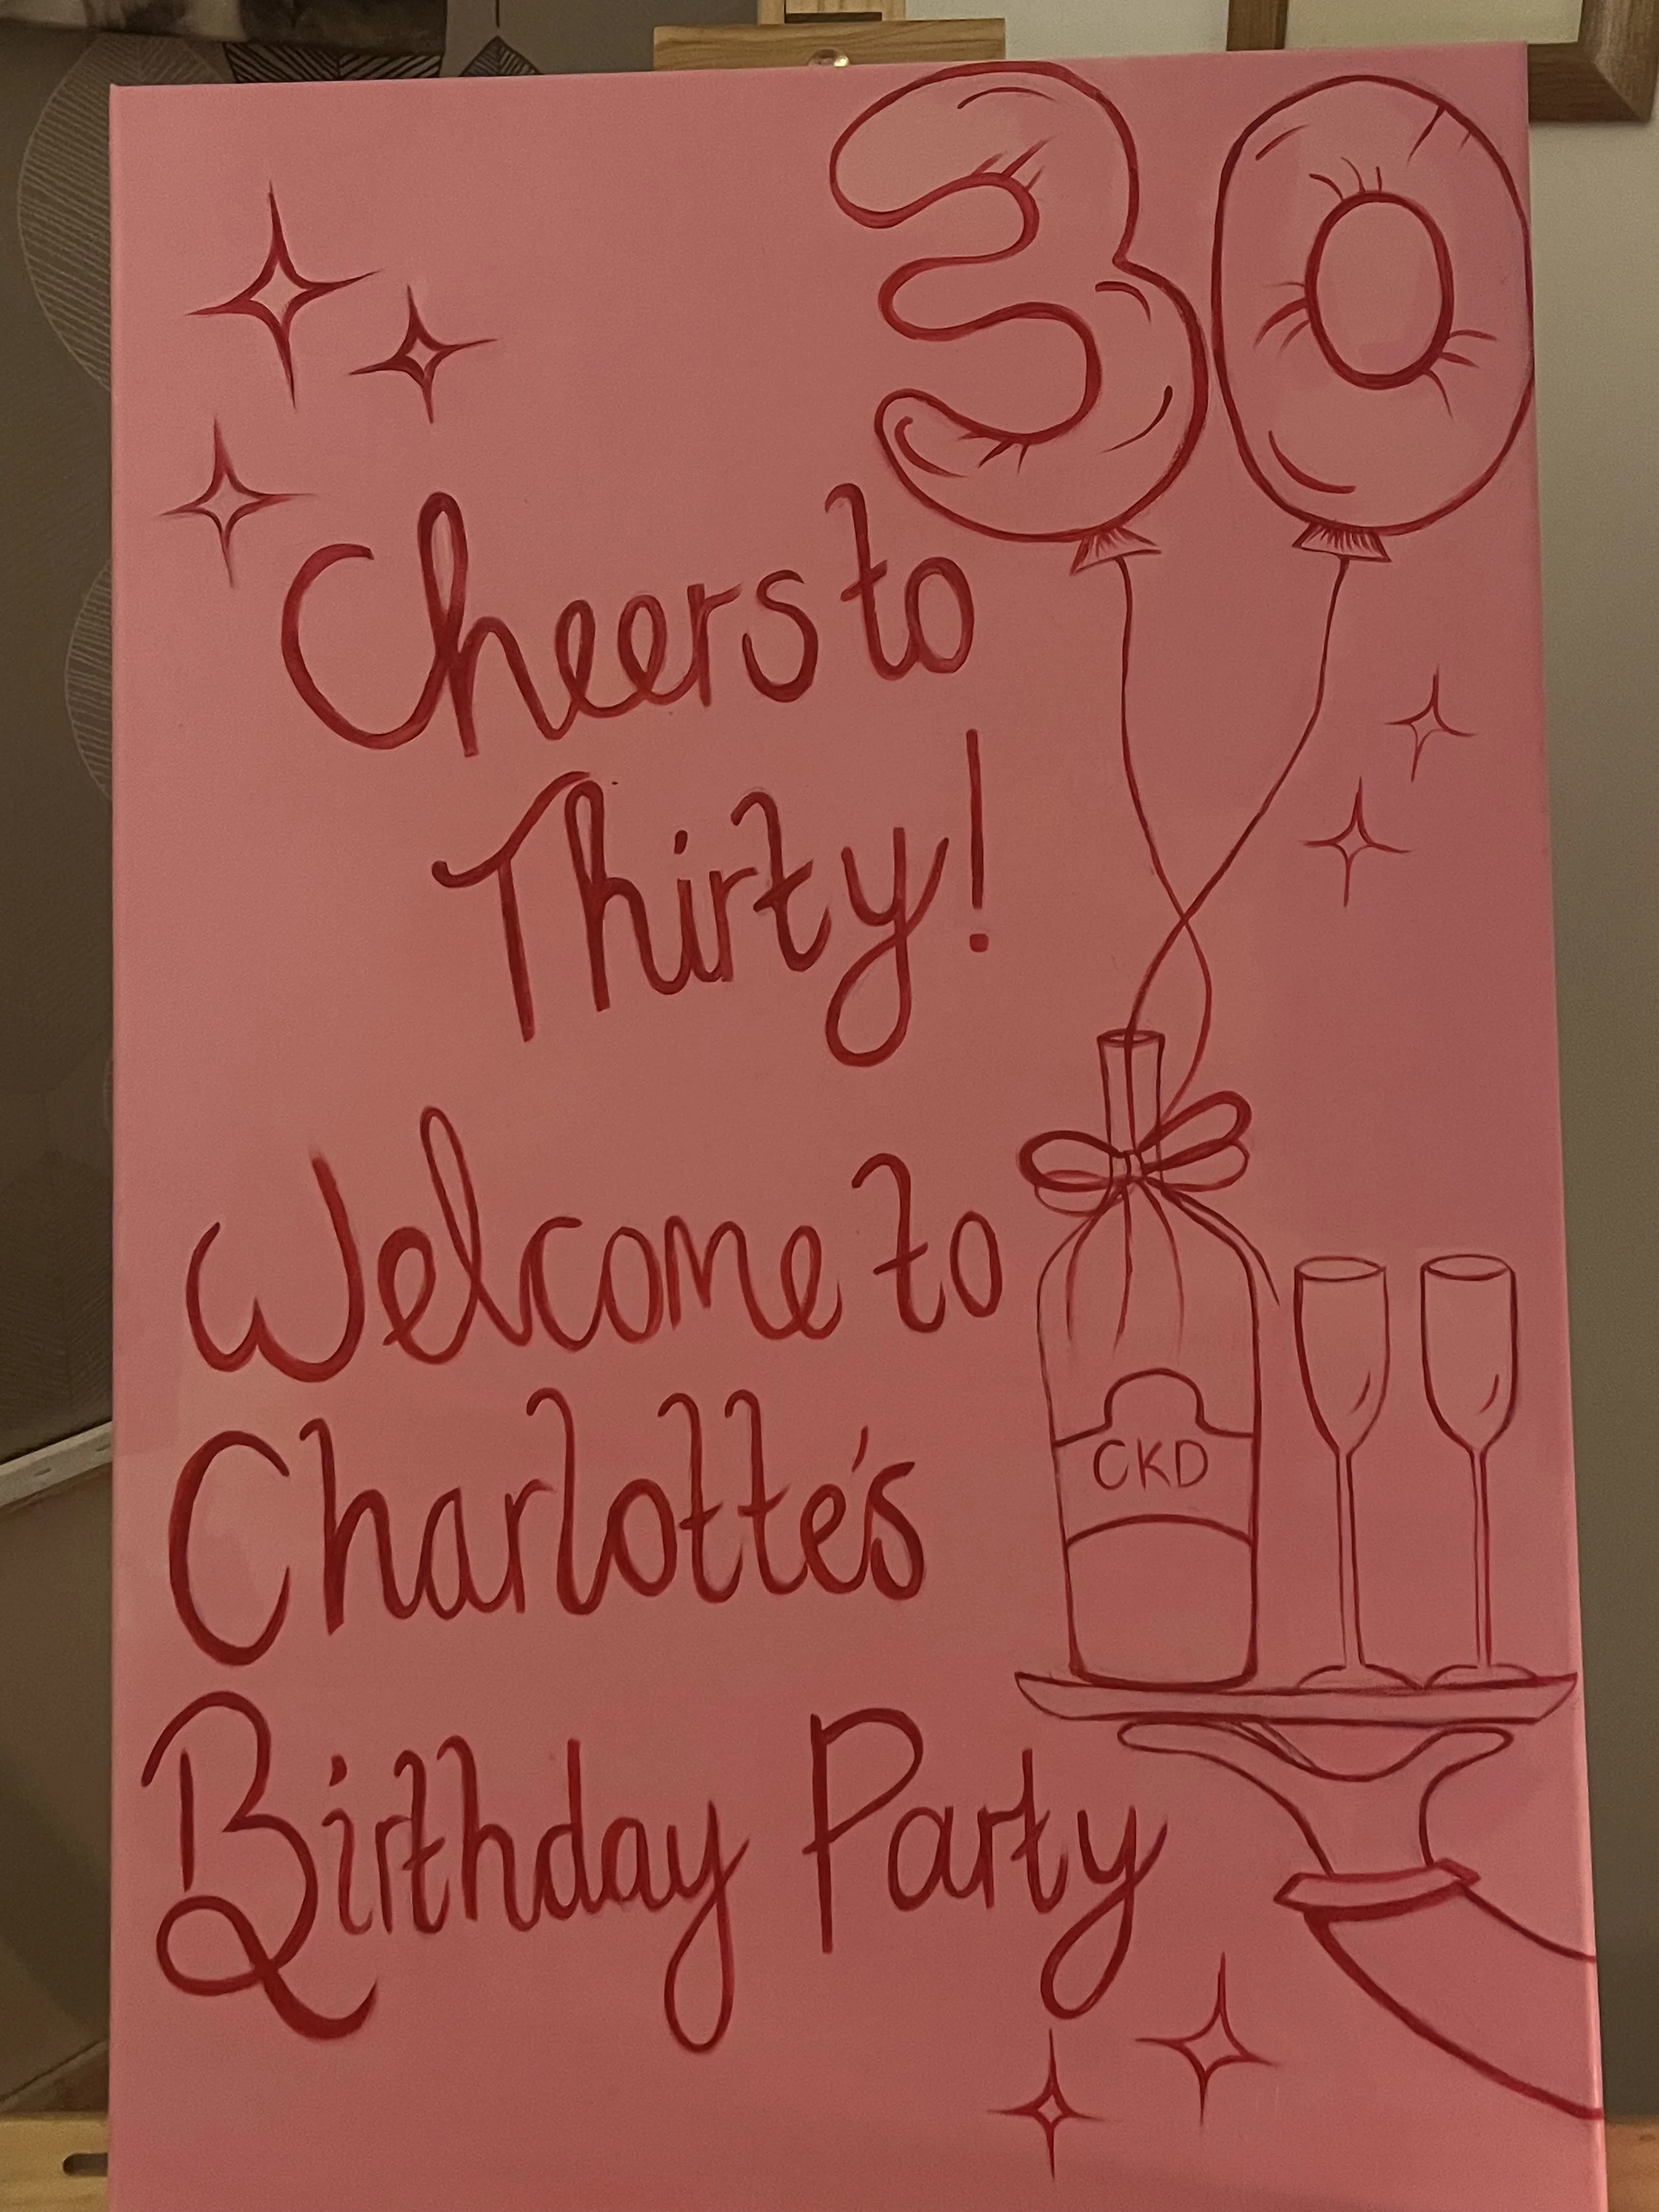 30
Cheers to
Thirty!
Welcome to
Charlotte's
CKD
Birthday Party